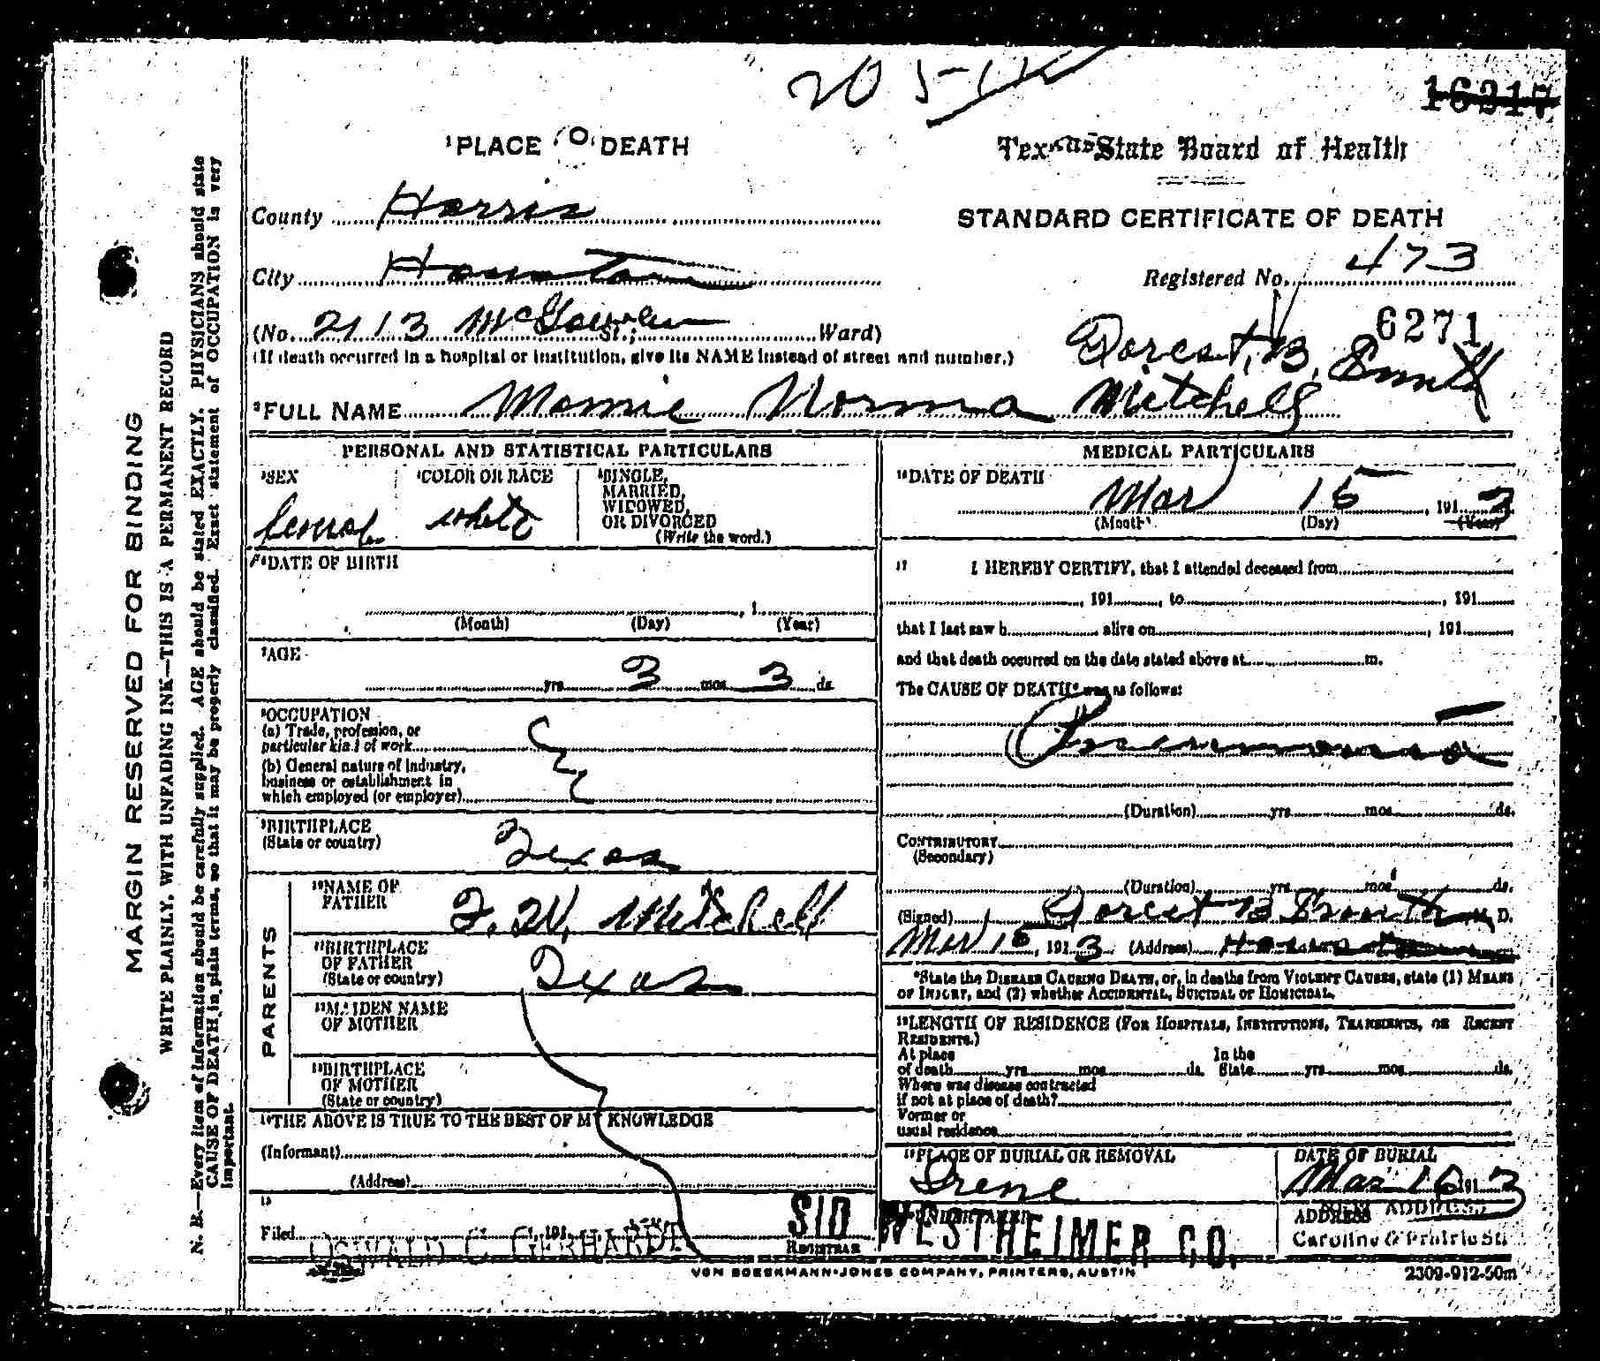 20 5-11
16217
¹PLACE OF DEATH
Texas State Board of Health
County Harris
STANDARD CERTIFICATE OF DEATH
City Houston
Registered No. 473
(No. 2113 McGowen St.; Ward)
6271
(If death occurred in a hospital or institution, give its NAME instead of street and number.)
²FULL NAME Mamie Norma Mitchell
PERSONAL AND STATISTICAL PARTICULARS
³SEX
Female
⁴COLOR OR RACE
white
⁵SINGLE,
MARRIED,
WIDOWED,
OR DIVORCED
(Write the word.)
⁶DATE OF BIRTH
, 1
(Month) (Day) (Year)
⁷AGE
yrs. 3 mos. 3 ds.
⁸OCCUPATION
(a) Trade, profession, or
particular kind of work
(b) General nature of Industry,
business or establishment in
which employed (or employer)
⁹BIRTHPLACE
(State or country) Texas
PARENTS
¹⁰NAME OF
FATHER Mitchell
¹¹BIRTHPLACE
OF FATHER
(State or country) Texas
¹²MAIDEN NAME
OF MOTHER
¹³BIRTHPLACE
OF MOTHER
(State or country)
¹⁴THE ABOVE IS TRUE TO THE BEST OF MY KNOWLEDGE
(Informant)
(Address)
¹⁵
Filed , 191
OSWALD C. GERHARDT
REGISTRAR
MEDICAL PARTICULARS
¹⁶DATE OF DEATH
Mar 15, 1913
(Month) (Day) (Year)
¹⁷ I HEREBY CERTIFY, that I attended deceased from
, 191 , to , 191
that I last saw h alive on , 191
and that death occurred on the date stated above at m.
The CAUSE OF DEATH* was as follows:
Pneumonia
(Duration) yrs. mos. ds.
CONTRIBUTORY
(Secondary)
(Duration) yrs. mos. ds.
(Signed) M. D.
Mar 15, 1913 (Address) Houston
*State the DISEASE CAUSING DEATH, or, in deaths from VIOLENT CAUSES, state (1) MEANS
OF INJURY, and (2) whether ACCIDENTAL, SUICIDAL or HOMICIDAL.
¹⁸LENGTH OF RESIDENCE (FOR HOSPITALS, INSTITUTIONS, TRANSIENTS, OR RECENT
RESIDENTS.)
At place In the
of death yrs. mos. ds. State yrs. mos. ds.
Where was disease contracted
if not at place of death?
Former or
usual residence
¹⁹PLACE OF BURIAL OR REMOVAL
Irene
DATE OF BURIAL
Mar 16 1913
UNDERTAKER
SID WESTHEIMER CO.
ADDRESS
NEW ADDRESS
Caroline & Prairie Sts
VON BOECKMANN-JONES COMPANY, PRINTERS, AUSTIN
2309-912-50m
MARGIN RESERVED FOR BINDING
WRITE PLAINLY, WITH UNFADING INK—THIS IS A PERMANENT RECORD
N. B.—Every item of information should be carefully supplied. AGE should be stated EXACTLY. PHYSICIANS should state
CAUSE OF DEATH in plain terms, so that it may be properly classified. Exact statement of OCCUPATION is very
important.